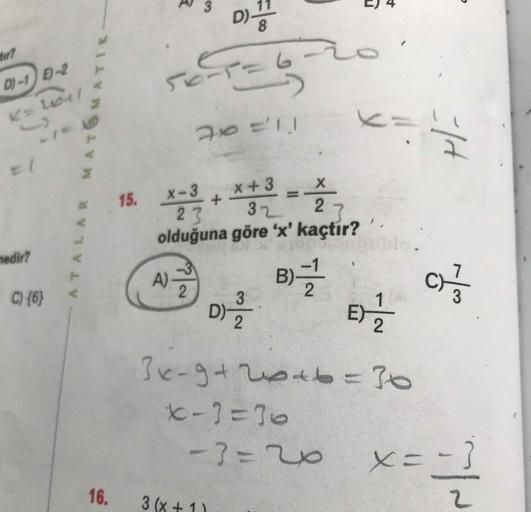 3
D) 11/8
E) 4
5x-5=6-2x
7x=11 x=11/7
tır?
D) -1 E) -2
x=2x+1
-1=x
=1
ATALAR MATEMATİK
nedir?
C) {6}
15. x-3/2 + x+3/3 = x/2
3 2 3
olduğuna göre 'x' kaçtır?
A) -3/2 B) -1/2 C) 7/3
D) 3/2 E) 1/2
3x-9+2x+6=3x
x-3=3x
-3=2x x=-3/2
16. 3 (x + 1)